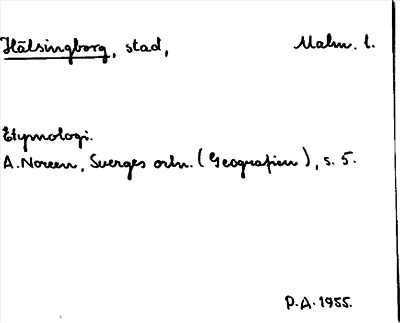 Hälsingborg, stad, Malm. l.
Etymologi.
A. Noreen, Sverges ortn. (Geografien), s. 5.
P.A. 1955.